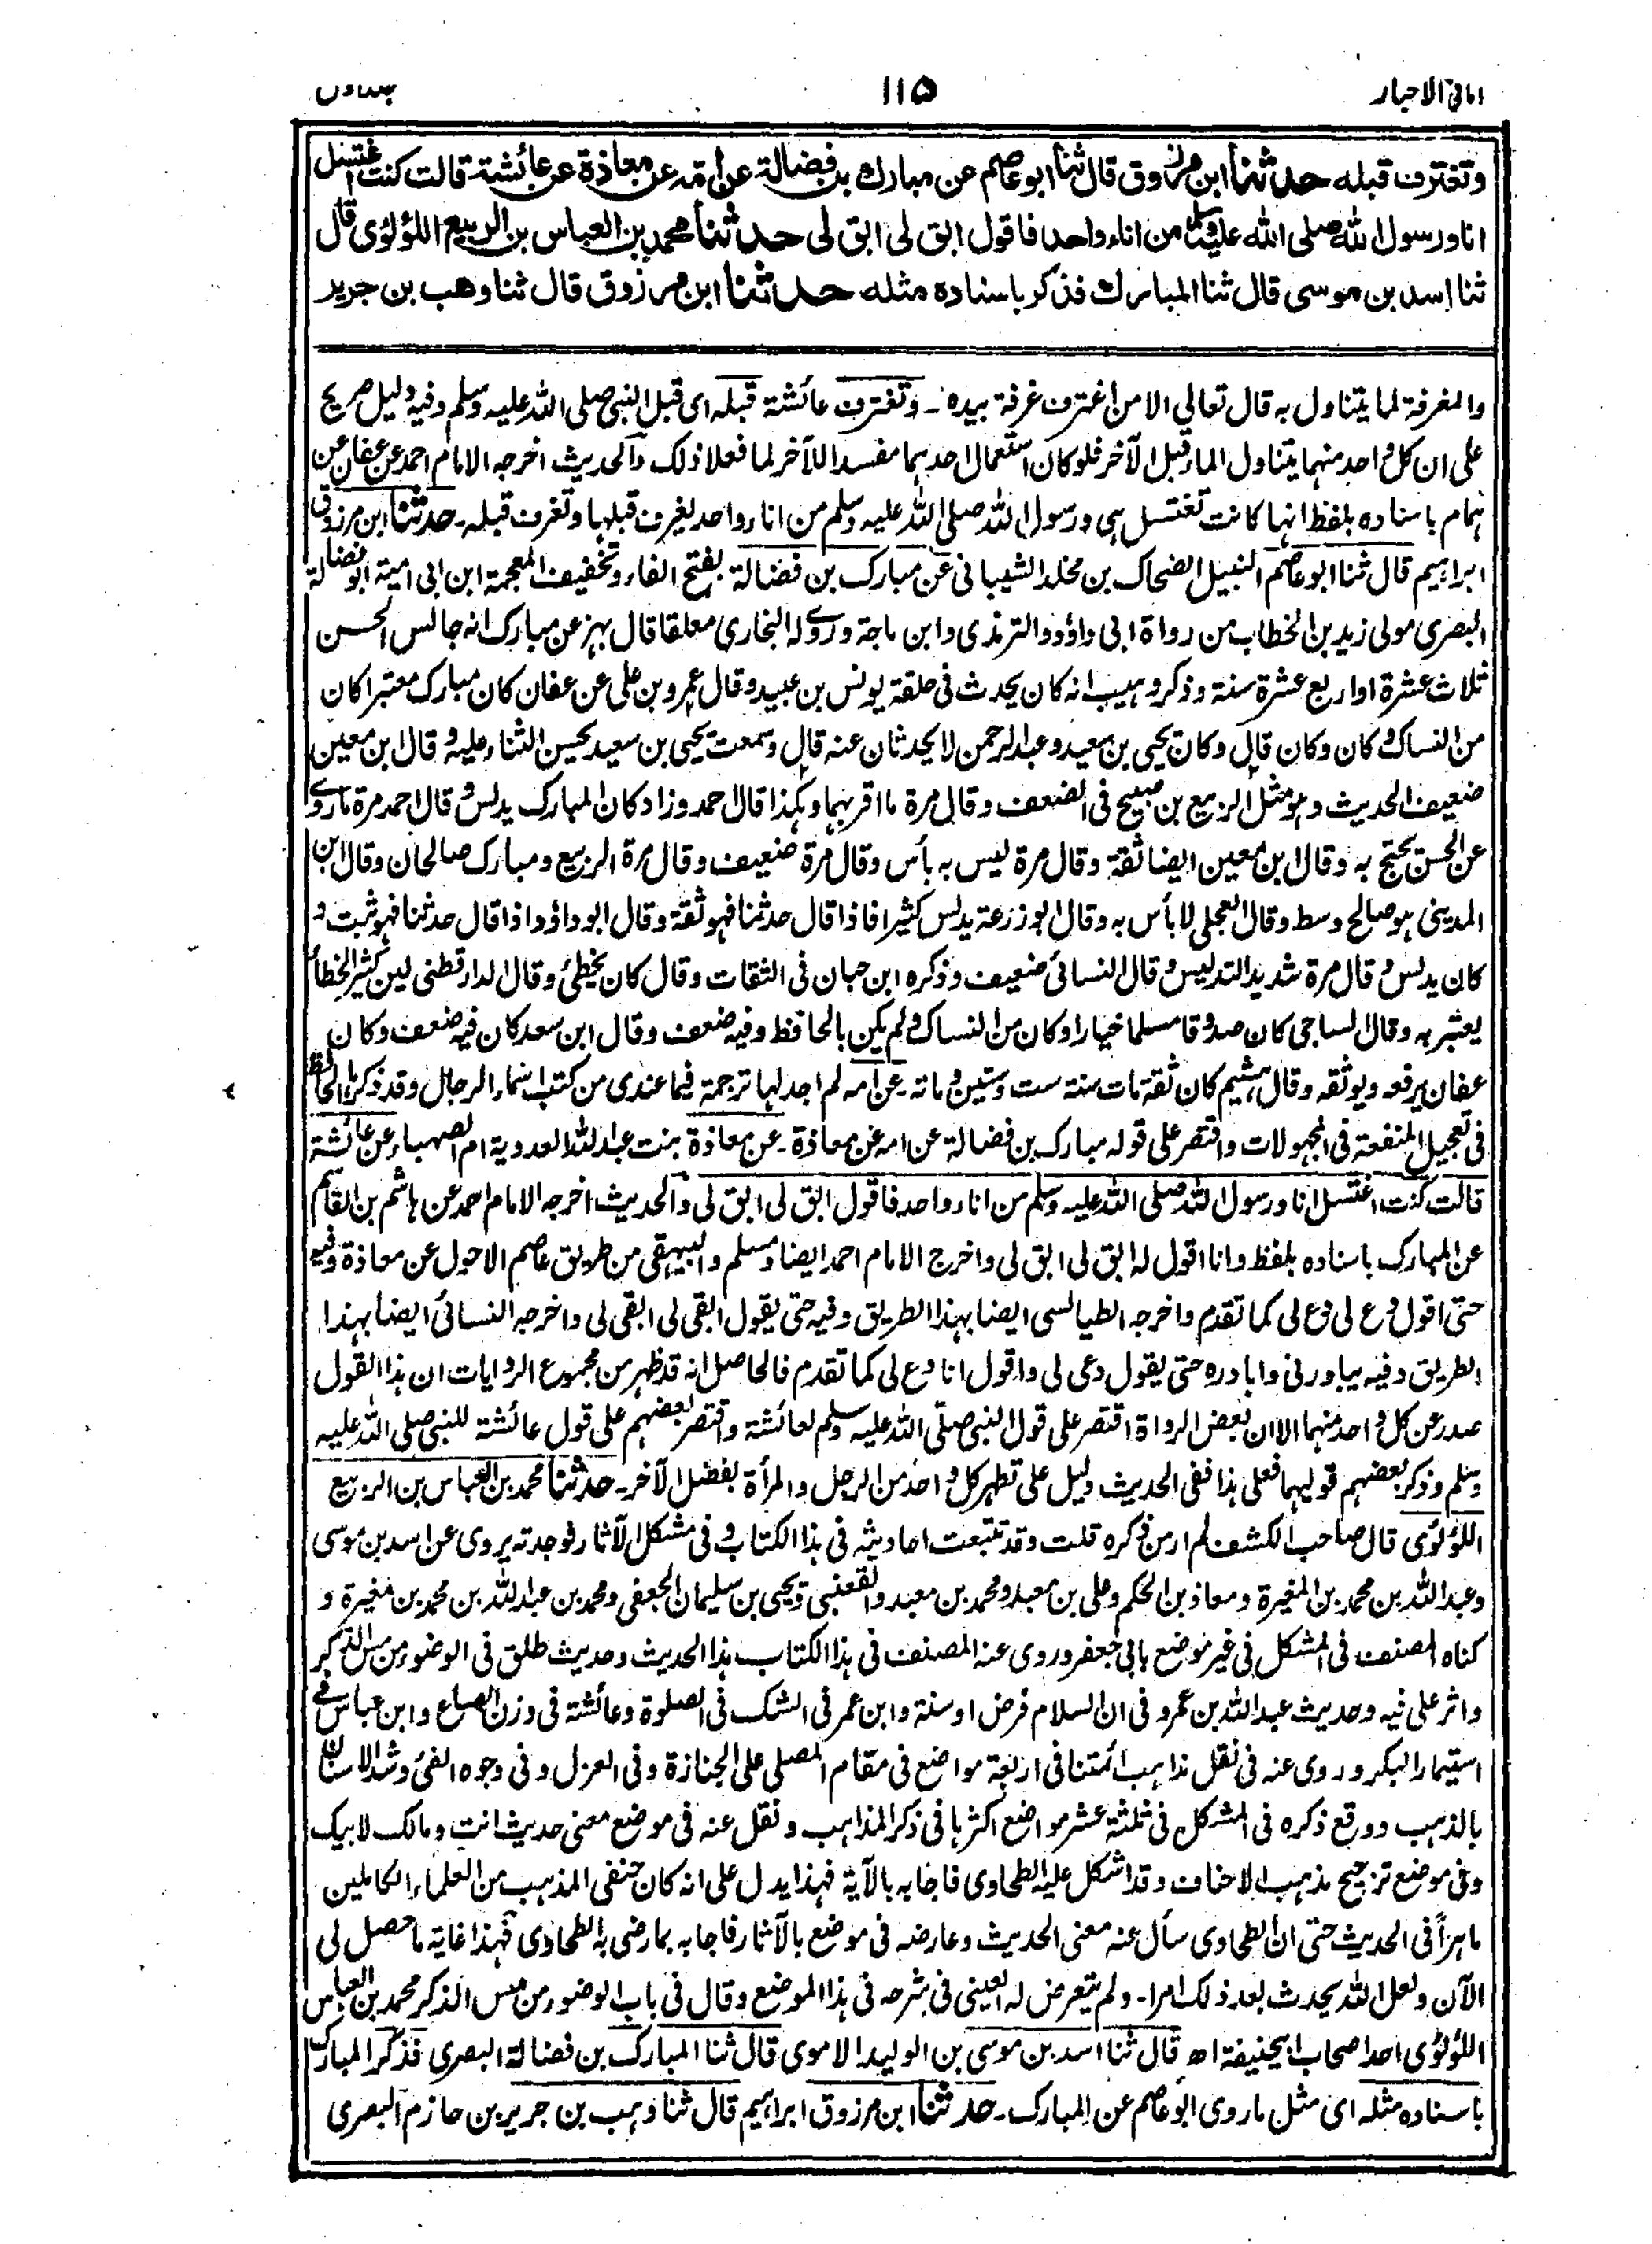 امانی الاحبار ۱۱۵ جلد اول
وتغترف قبله حدثنا ابن مرزوق قال ثنا ابو عاصم عن مبارك بن فضالة عن امّه عن معاذة عن عائشة قالت كنت اغتسل
انا ورسول الله صلى الله عليه وسلم من اناء واحد فاقول ابق لى ابق لى حدثنا محمد بن العباس بن الربيع اللؤلؤى قال
ثنا اسد بن موسى قال ثنا المبارك فذكر باسناده مثله حدثنا ابن مرزوق قال ثنا وهب بن جرير
والمغرفة لما يتناول به قال تعالى الا من اغترف غرفة بيده ـ وتغترف عائشة قبله اى قبل النبى صلى الله عليه وسلم وفيه دليل صريح
على ان كل واحد منهما يتناول الماء قبل الآخر فلو كان استعمال احدهما مفسدا للآخر لما فعلا ذلك والحديث اخرجه الامام احمد عن عفان عن
همام باسناده بلفظ انها كانت تغتسل هى ورسول الله صلى الله عليه وسلم من اناء واحد يغرف قبلها وتغرف قبله ـ حدثنا ابن مرزوق
ابراهيم قال ثنا ابو عاصم النبيل الضحاك بن مخلد الشيبانى عن مبارك بن فضالة بفتح الفاء وتخفيف المعجمة ابن ابى امية ابو فضالة
البصرى مولى زيد بن الخطاب من رواة ابى داؤد والترمذى وابن ماجة وروى له البخارى معلقا قال بهز عن مبارك انه جالس الحسن
ثلاث عشرة او اربع عشرة سنة وذكر وهيب انه كان يحدث فى حلقة يونس بن عبيد وقال عمرو بن على عن عفان كان مبارك معتبرا كان
من النساك وكان وكان قال وكان يحيى بن سعيد وعبد الرحمن لا يحدثان عنه قال وسمعت يحيى بن سعيد يحسن الثناء عليه وقال ابن معين
ضعيف الحديث وهو مثل الربيع بن صبيح فى الضعف وقال مرة ما اقربهما وهكذا قال احمد وزاد كان المبارك يدلس وقال احمد مرة ما روى
عن الحسن يحتج به وقال ابن معين ايضا ثقة وقال مرة ليس به بأس وقال مرة ضعيف وقال مرة الربيع ومبارك صالحان وقال ابن
المدينى هو صالح وسط وقال العجلى لا بأس به وقال ابو زرعة يدلس كثيرا فاذا قال حدثنا فهو ثقة وقال ابو داؤد اذا قال حدثنا فهو ثبت و
كان يدلس وقال مرة شديد التدليس وقال النسائى ضعيف وذكره ابن حبان فى الثقات وقال كان يخطئ وقال الدارقطنى لين كثير الخطأ
يعتبر به وقال الساجى كان صدوقا مسلما خيارا وكان من النساك ولم يكن بالحافظ وفيه ضعف وقال ابن سعد كان فيه ضعف وكان
عفان يرفعه ويوثقه وقال هشيم كان ثقة مات سنة ست وستين ومائة ـ عن امه لم اجد لها ترجمة فيما عندى من كتب اسماء الرجال وقد ذكرها الحافظ
فى تعجيل المنفعة فى المجهولات واقتصر على قوله مبارك بن فضالة عن امه عن معاذة ـ عن معاذة بنت عبد الله العدوية ام الصهباء عن عائشة
قالت كنت اغتسل انا ورسول الله صلى الله عليه وسلم من اناء واحد فاقول ابق لى ابق لى والحديث اخرجه الامام احمد عن هاشم بن القاسم
عن المبارك باسناده بلفظ وانا اقول له ابق لى ابق لى واخرج الامام احمد ايضا ومسلم والبيهقى من طريق عاصم الاحول عن معاذة وفيه
حتى اقول دع لى دع لى كما تقدم واخرجه الطيالسى ايضا بهذا الطريق وفيه حتى يقول ابقى لى ابقى لى واخرجه النسائى ايضا بهذا
الطريق وفيه يبادرنى وابادره حتى يقول دعى لى واقول انا دع لى كما تقدم فالحاصل انه قد ظهر من مجموع الروايات ان هذا القول
صدر عن كل واحد منهما الا ان بعض الرواة اقتصر على قول النبى صلى الله عليه وسلم لعائشة واقتصر بعضهم على قول عائشة للنبى صلى الله عليه
وسلم وذكر بعضهم قوليهما فعلى هذا ففى الحديث دليل على تطهر كل واحد من الرجل والمرأة بفضل الآخر ـ حدثنا محمد بن العباس بن الربيع
اللؤلؤى قال صاحب الكشف لم ار من ذكره قلت وقد تتبعت احاديثه فى هذا الكتاب وفى مشكل الآثار فوجدته يروى عن اسد بن موسى
وعبد الله بن محمد بن المغيرة ومعاذ بن الحكم وعلى بن معبد ومحمد بن معبد والقعنبى ويحيى بن سليمان الجعفى ومحمد بن عبد الله بن محمد بن مغيرة و
كناه المصنف فى المشكل فى غير موضع بابى جعفر وروى عنه المصنف فى هذا الكتاب هذا الحديث وحديث طلق فى الوضوء من مس الذكر
واثر على فيه وحديث عبد الله بن عمرو فى ان السلام فرض او سنة وابن عمر فى الشك فى الصلوة وعائشة فى وزن الصاع وابن عباس فى
استيمار البكر وروى عنه فى نقل مذاهب ائمتنا فى اربعة مواضع فى مقام المصلى على الجنازة وفى العزل وفى وجوه الفئ وشد الاسنان
بالذهب ووقع ذكره فى المشكل فى ثلثة عشر مواضع اكثرها فى ذكر المذاهب ونقل عنه فى موضع معنى حديث انت ومالك لابيك
وفى موضع ترجيح مذهب الاحناف وقد اشكل عليه الطحاوى فاجابه بالآية فهذا يدل على انه كان حنفى المذهب من العلماء الكاملين
ماهراً فى الحديث حتى ان الطحاوى سأل عنه معنى الحديث وعارضه فى موضع بالآثار فاجابه بما رضى به الطحاوى فهذا غاية ما حصل لى
الآن ولعل الله يحدث بعد ذلك امرا ـ ولم يتعرض له العينى فى شرحه فى هذا الموضع وقال فى باب الوضوء من مس الذكر محمد بن العباس
اللؤلؤى احد اصحاب ابيحنيفة اه قال ثنا اسد بن موسى بن الوليد الاموى قال ثنا المبارك بن فضالة البصرى فذكر المبارك
باسناده مثله اى مثل ما روى ابو عاصم عن المبارك ـ حدثنا ابن مرزوق ابراهيم قال ثنا وهب بن جرير بن حازم البصرى